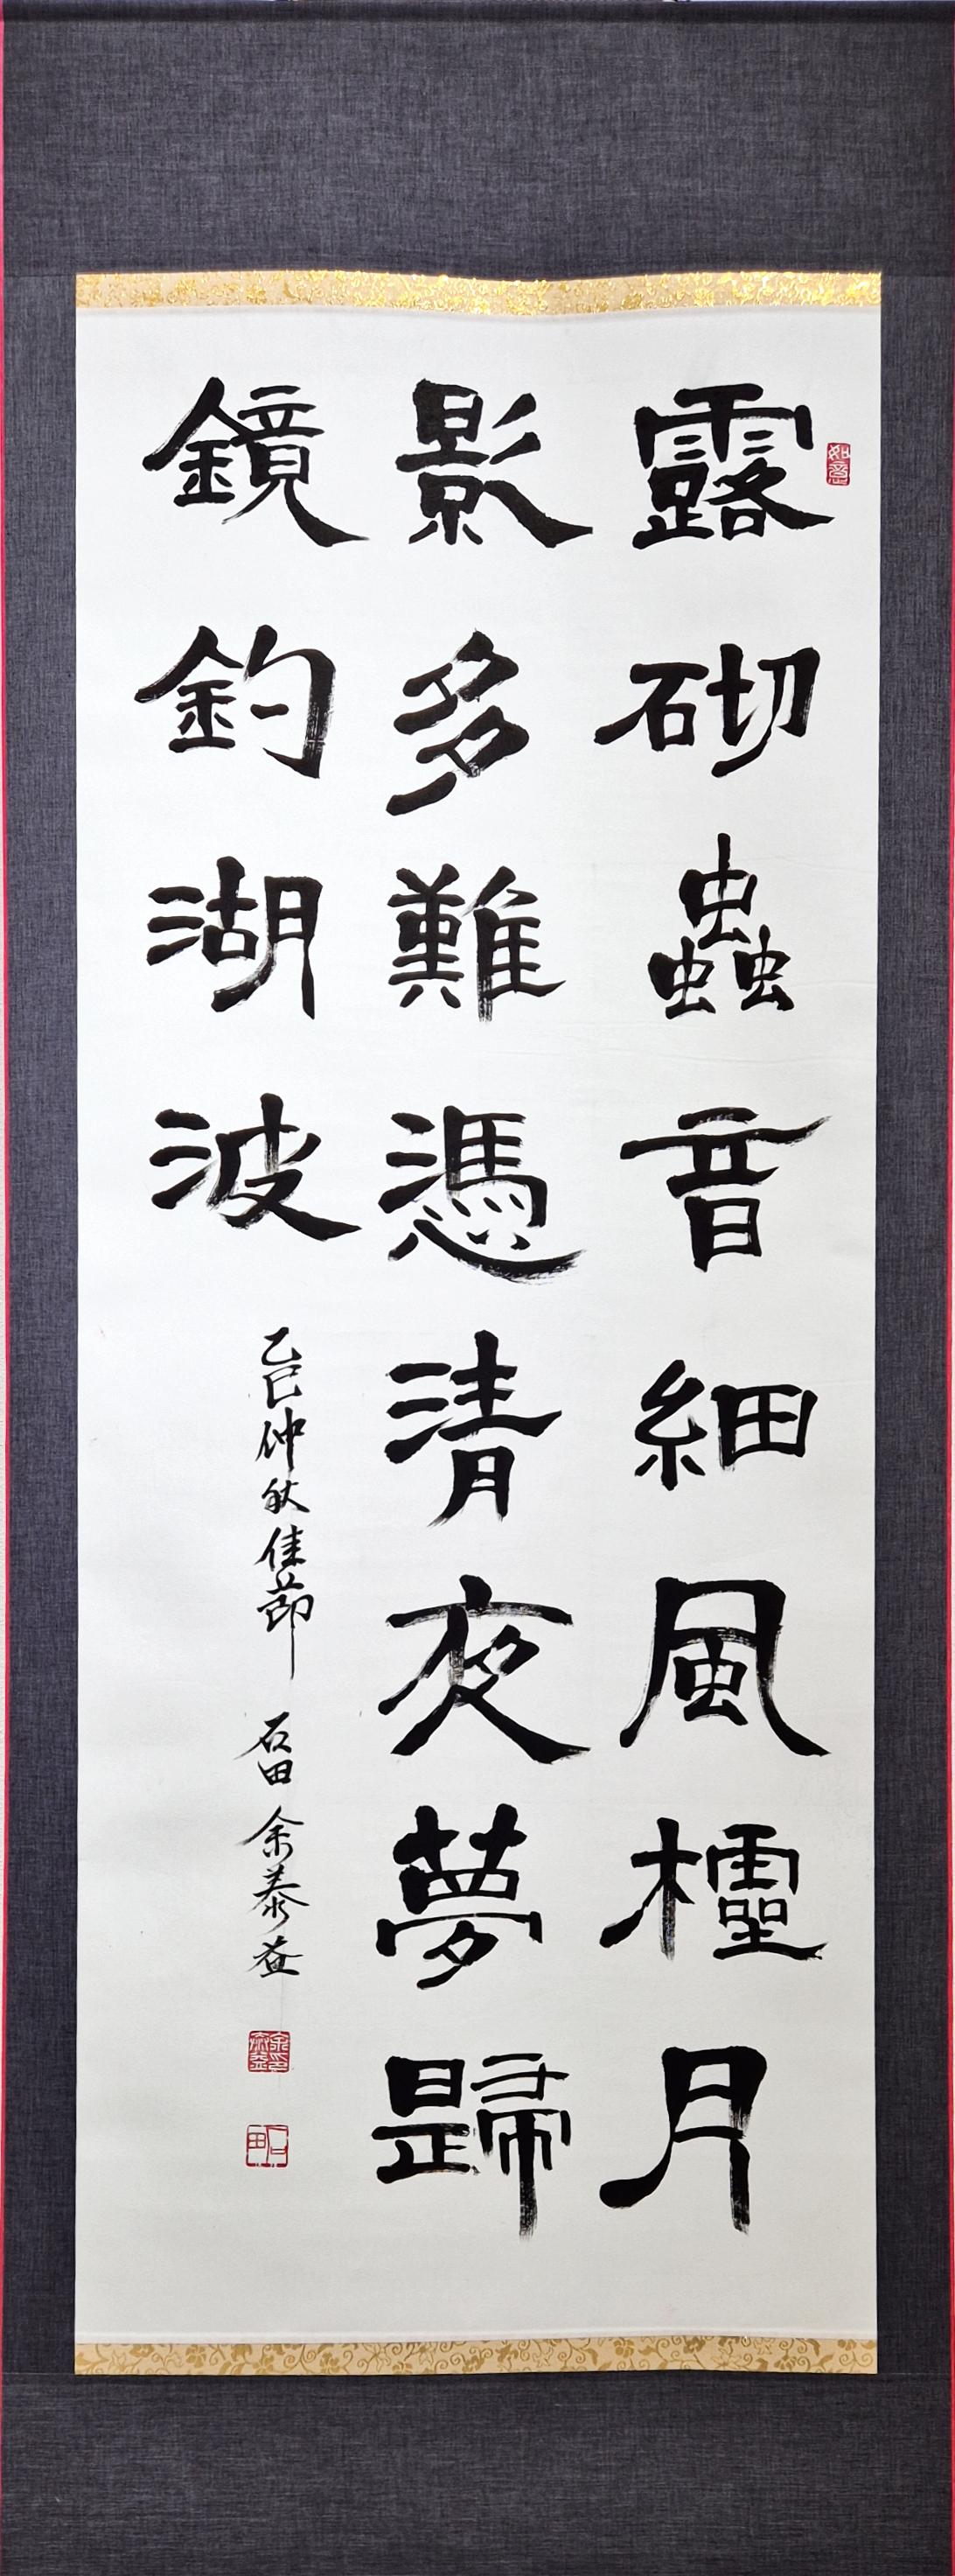 露砌蟲音細風櫺月
影多難憑清夜夢歸
鏡釣湖波
乙巳仲秋佳節 石田 余泰益
如意
石田